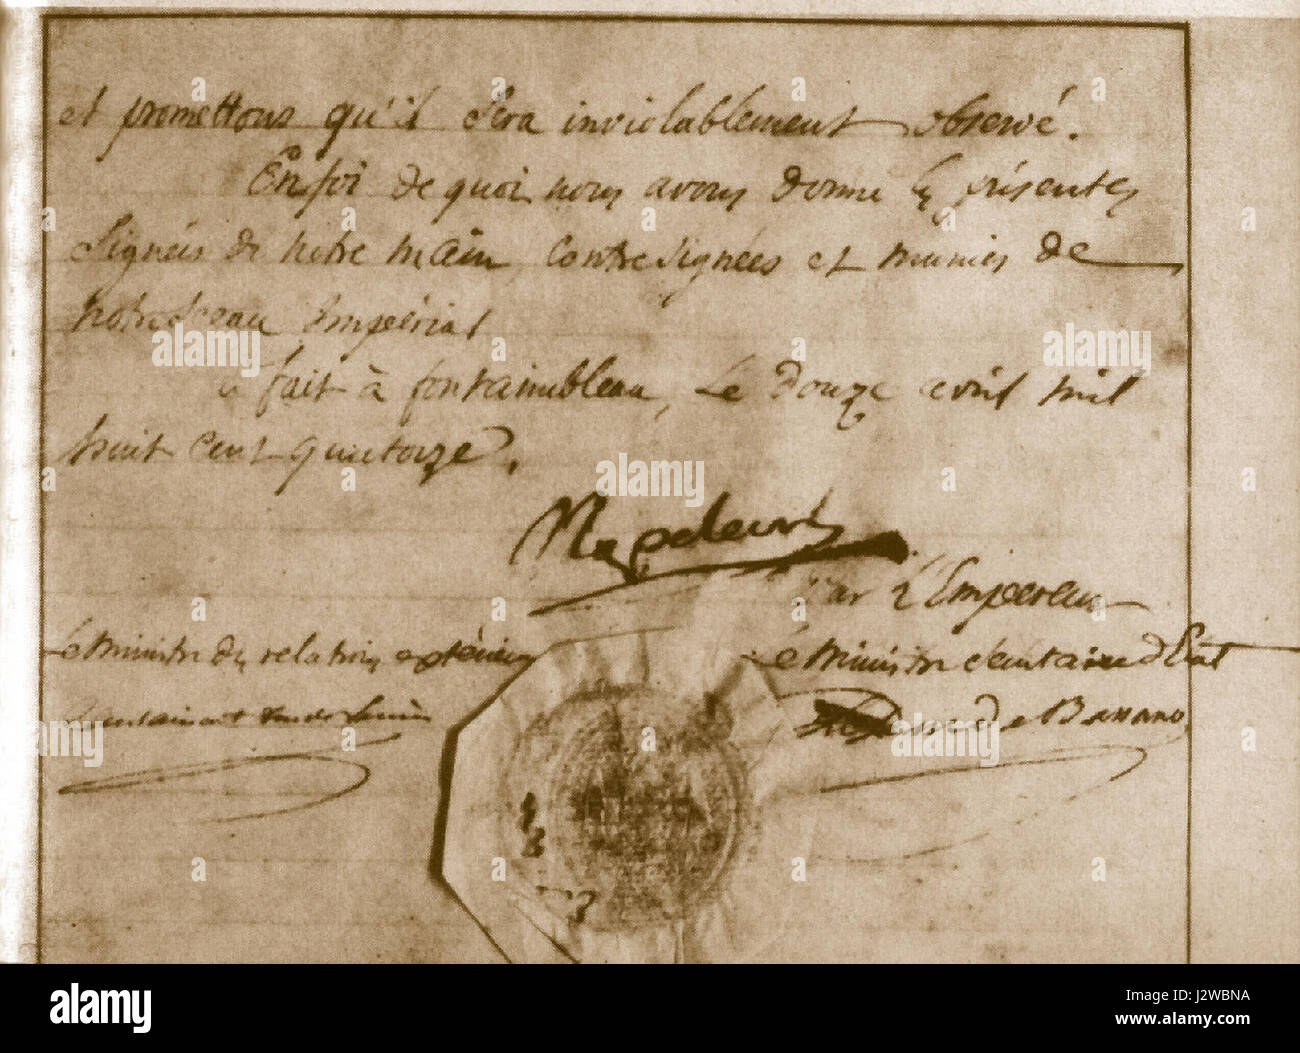 et promettons qu'il sera inviolablement observé.
En foi de quoi nous avons donné les présentes
Signées de notre main, contresignées et munies de
notre Sceau Impérial
fait à fontainebleau, Le douze avril mil
huit cent quatorze.
Napoleon
Par l'Empereur
Le Ministre des relations extérieures
Le Ministre Secretaire d'Etat
Caulaincourt duc de Vicence
duc de Bassano
alamy
Image ID: J2WBNA
www.alamy.com